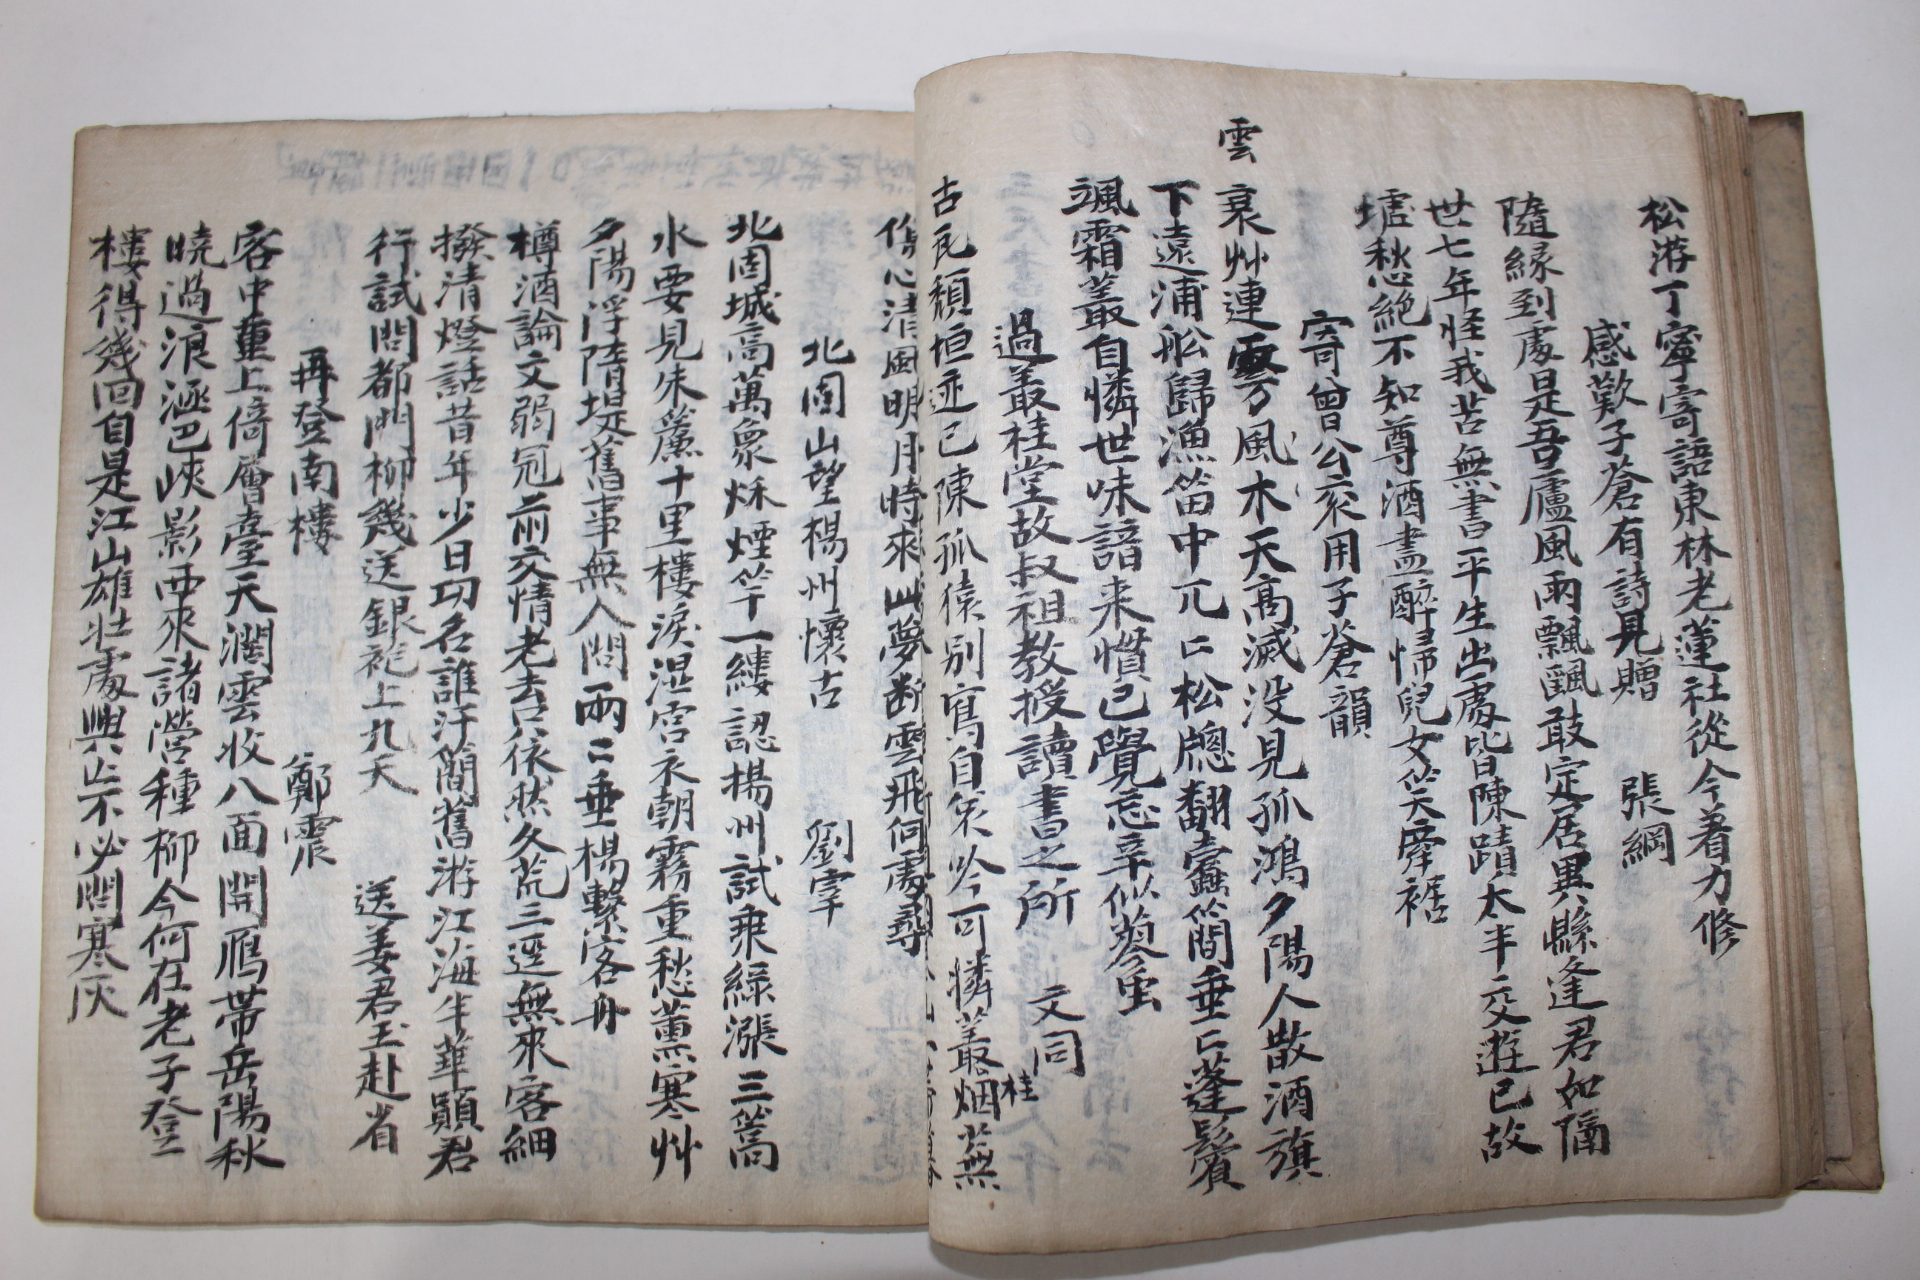 松游丁寧寄語東林老蓮社從今着力修
感歎子蒼有詩見贈 張綱
隨緣到處是吾廬風雨飄飄敢定居異縣逢君如隔
世七年怪我苦無書平生出處皆陳蹟太半交遊已故
墟愁絶不知尊酒盡醉歸兒女笑牽裾
寄曾公衮用子蒼韻
雲
衰艸連雲風木天高滅没見孤鴻夕陽人散酒旗
下遠浦舩歸漁笛中兀二松牕翻蠹簡垂二蓬鬢
颯霜叢自憐世味諳来慣已覺忘辛似蓼虫
過叢桂堂故叔祖教授讀書之所 文同
古瓦頹垣迹已陳孤猿別寫自哀吟可憐叢桂烟蕪
傷心清風明月時來此夢断雲飛何處尋
北固山望楊州懷古 劉宰
北固城高萬象秌煙竿一縷認揚州試乗綠漲三篙
水要見朱簾十里樓淚湿宮衣朝霧重愁薫寒艸
夕陽浮隋堤舊事無人問兩二垂楊繋客舟
樽酒論文弱冠前交情老去只依然久荒三逕無來客細
撥清燈話昔年少日功名誰汗簡舊游江海半華顛君
行試問都門柳幾送銀袍上九天
送姜君玉赴省
再登南樓 鄭震
客中重上倚層臺天濶雲收八面開鴈帶岳陽秋
曉過浪涵巴峽影西來諸營種柳今何在老子登
樓得幾回自是江山雄壮處興亡不必問寒灰